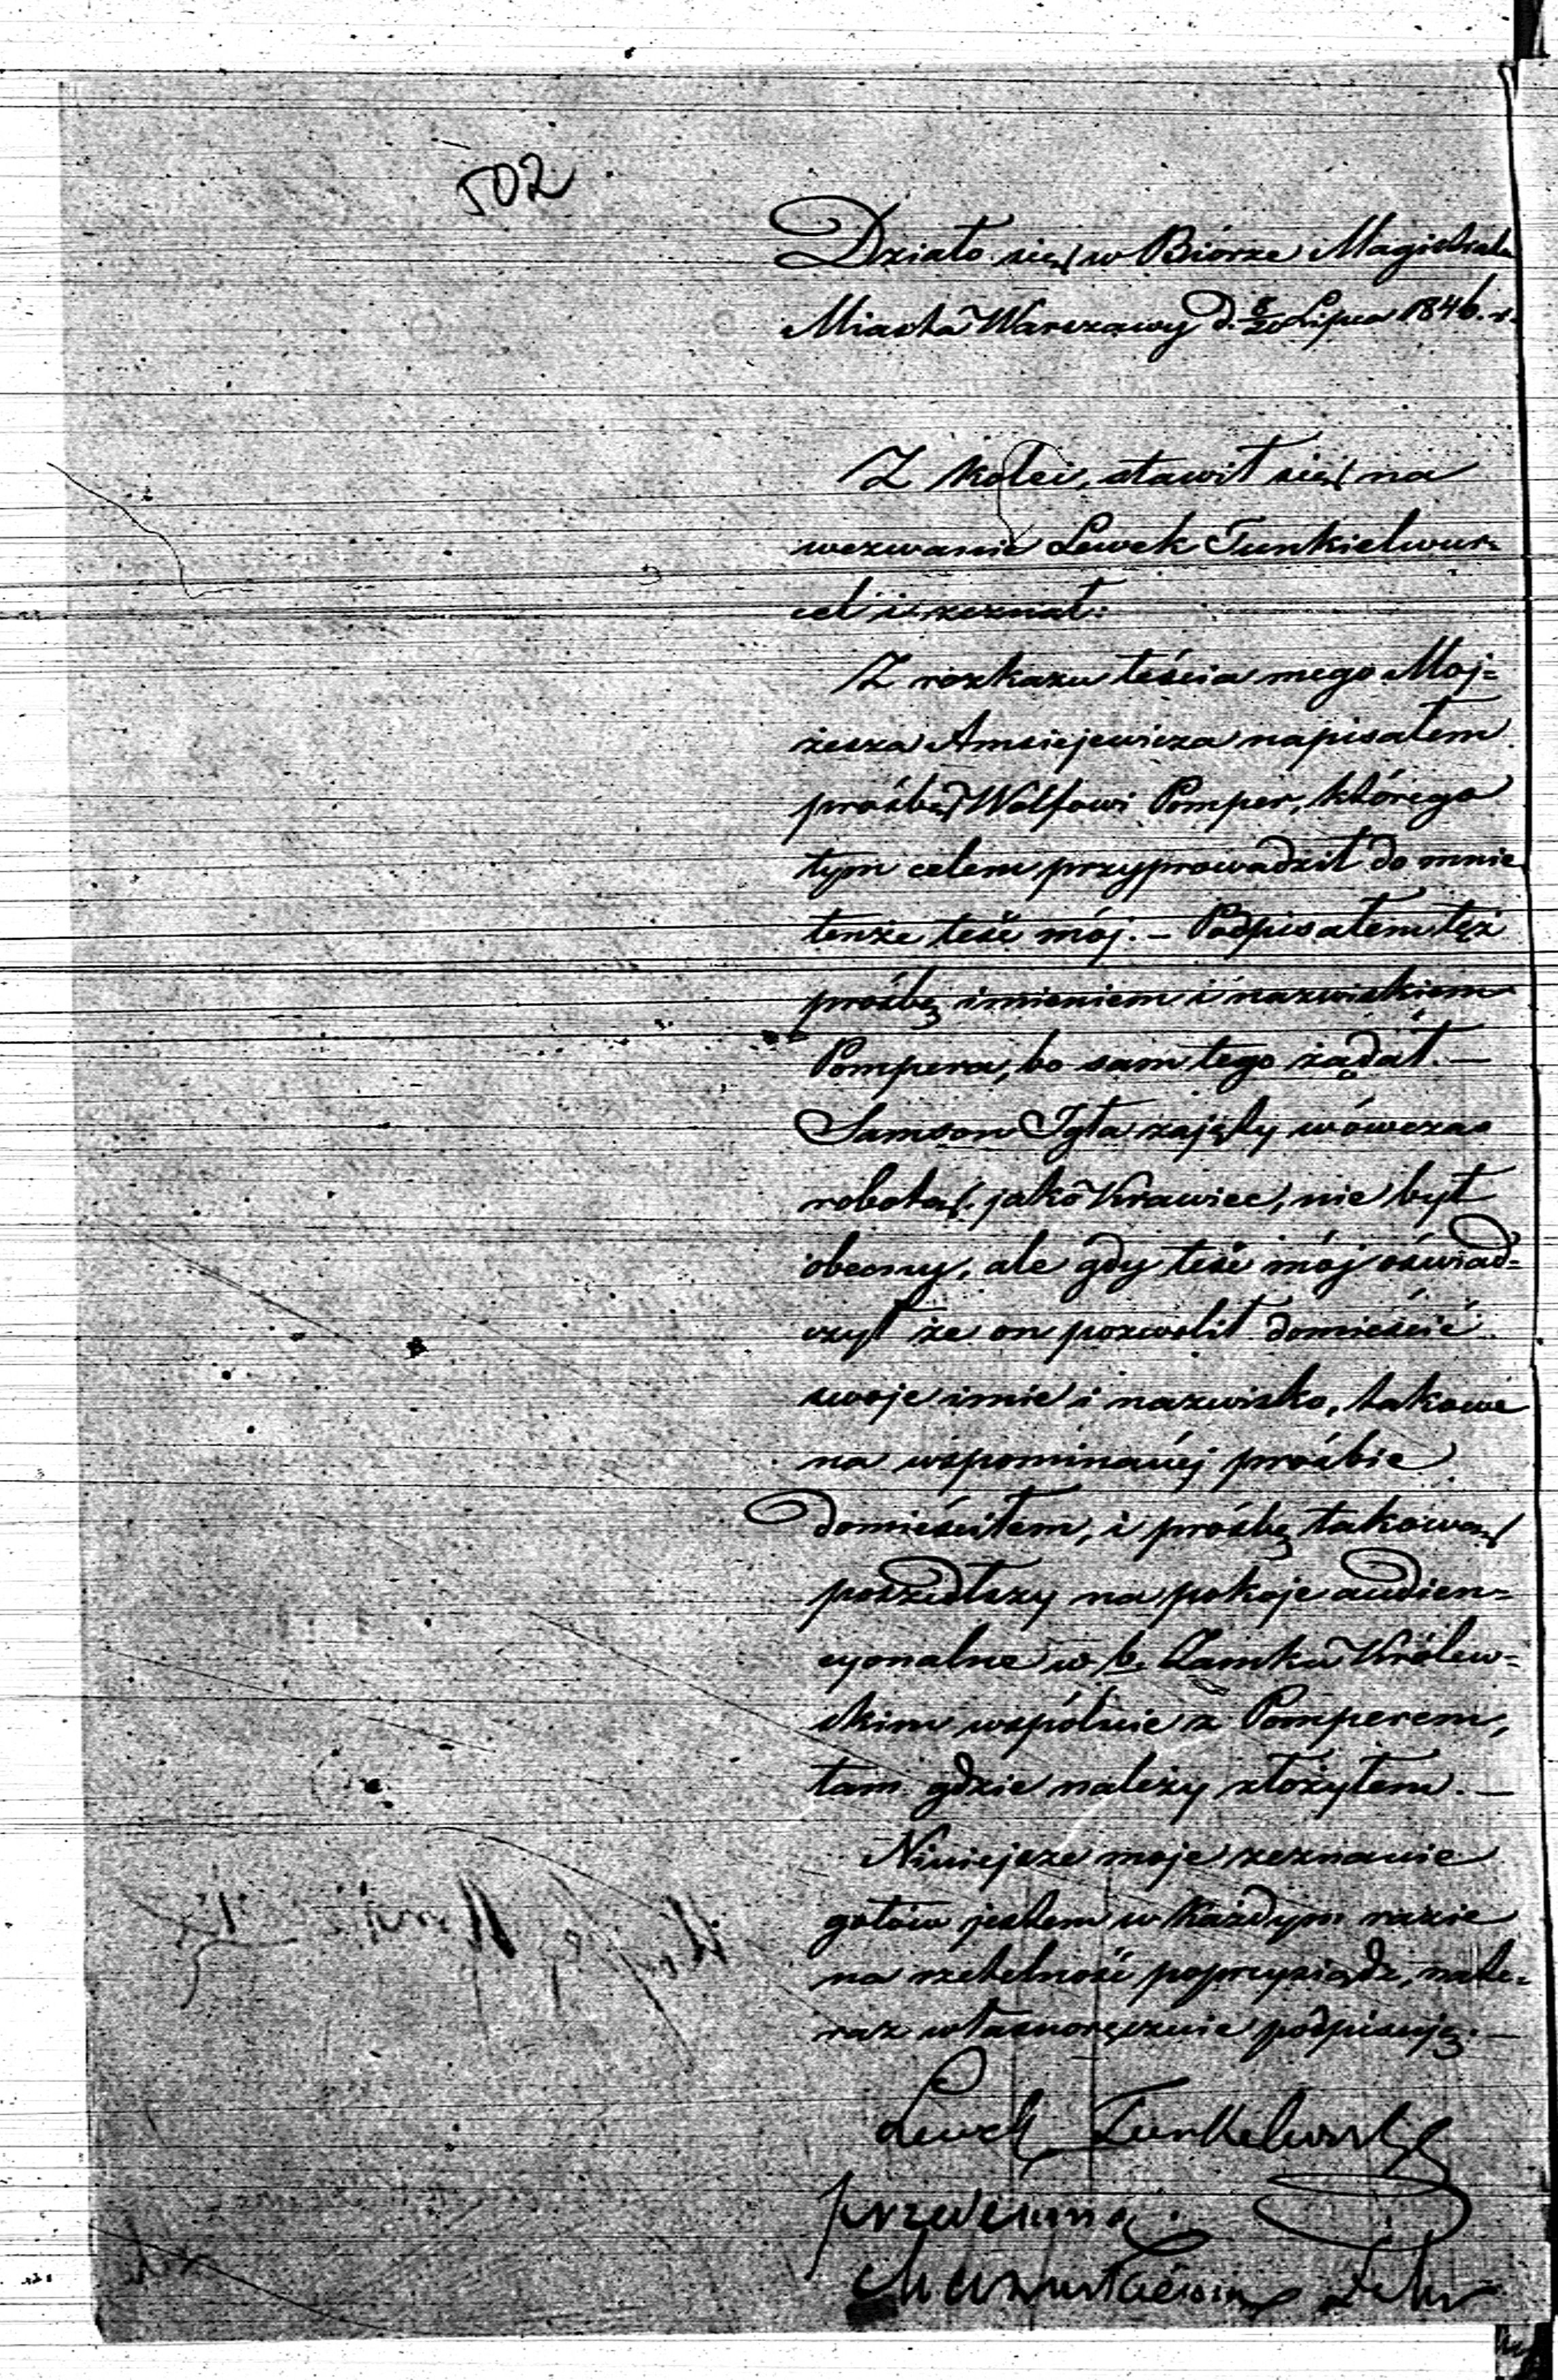 502
Działo się w Biórze Magistratu
Miasta Warszawy d. 8/20 Lipca 1846. r.
Z kolei, stawił się na
wezwanie Lewek Funkielwur-
cel i zeznał:
Z rozkazu teścia mego Moj=
żesza Amsiejewicza napisałem
prośbę Wolfowi Pomper, którego
tym celem przyprowadził do mnie
tenże teść mój. – Podpisałem tęż
prośbę imieniem i nazwiskiem
Pompera, bo sam tego żądał. –
Samson Igła zajęty wówczas
robotą, jako Krawiec, nie był
obecny, ale gdy teść mój oświad=
czył że on pozwolił domieścić
swoje imie i nazwisko, takowe
na wspominanéj prośbie
domieściłem, i prośbę takową
poszedłszy na pokoje audien=
cyonalne w b. Zamku Królew=
skim wspólnie z Pomperem,
tam gdzie należy złożyłem. –
Niniejsze moje zeznanie
gotów jestem w każdym razie
na rzetelność poprzysiądz, nate=
raz własnoręcznie podpisuję. –
Lewek